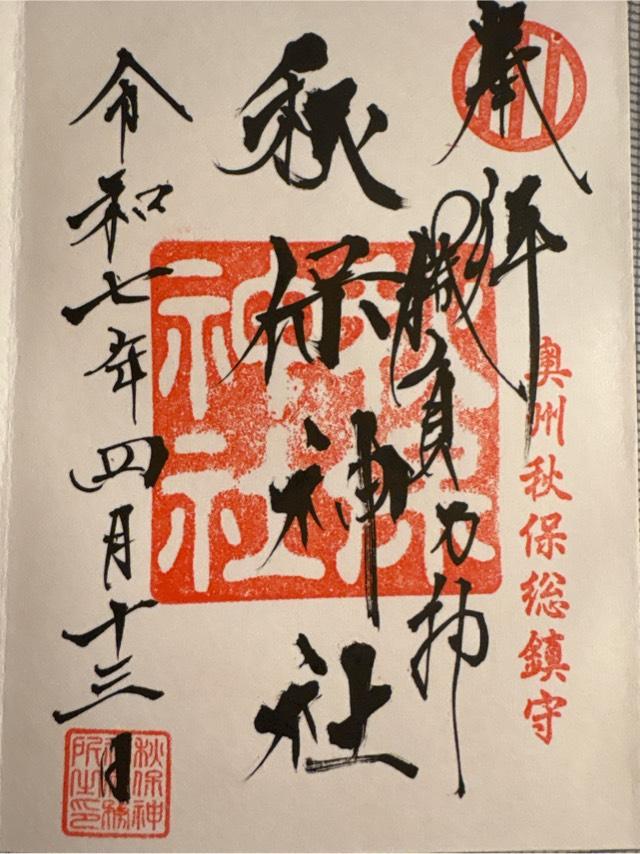 奉拝
奥州秋保総鎮守
勝負の神
秋保神社
秋保神社
令和七年四月十三日
秋保神
社務
所之印